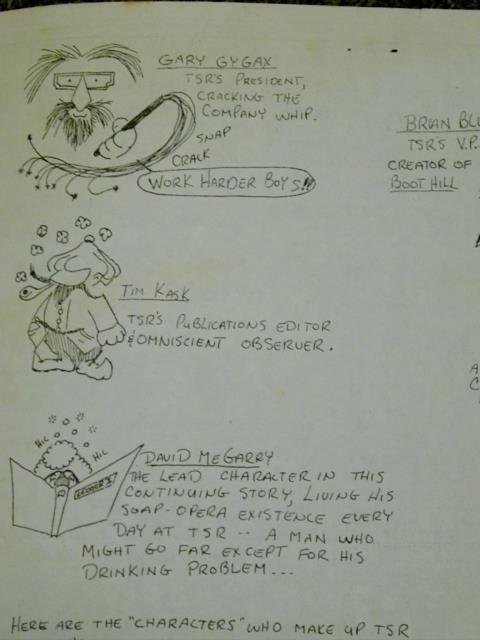 GARY GYGAX
TSR'S PRESIDENT,
CRACKING THE
COMPANY WHIP.
SNAP
CRACK
WORK HARDER BOYS!!
BRIAN
TSR'S V.P.
CREATOR OF
BOOT HILL
TIM KASK
TSR'S PUBLICATIONS EDITOR
& OMNISCIENT OBSERVER.
HIC
HIC
DAVID MEGARRY
THE LEAD CHARACTER IN THIS
CONTINUING STORY, LIVING HIS
SOAP-OPERA EXISTENCE EVERY
DAY AT TSR -- A MAN WHO
MIGHT GO FAR EXCEPT FOR HIS
DRINKING PROBLEM...
HERE ARE THE "CHARACTERS" WHO MAKE UP TSR